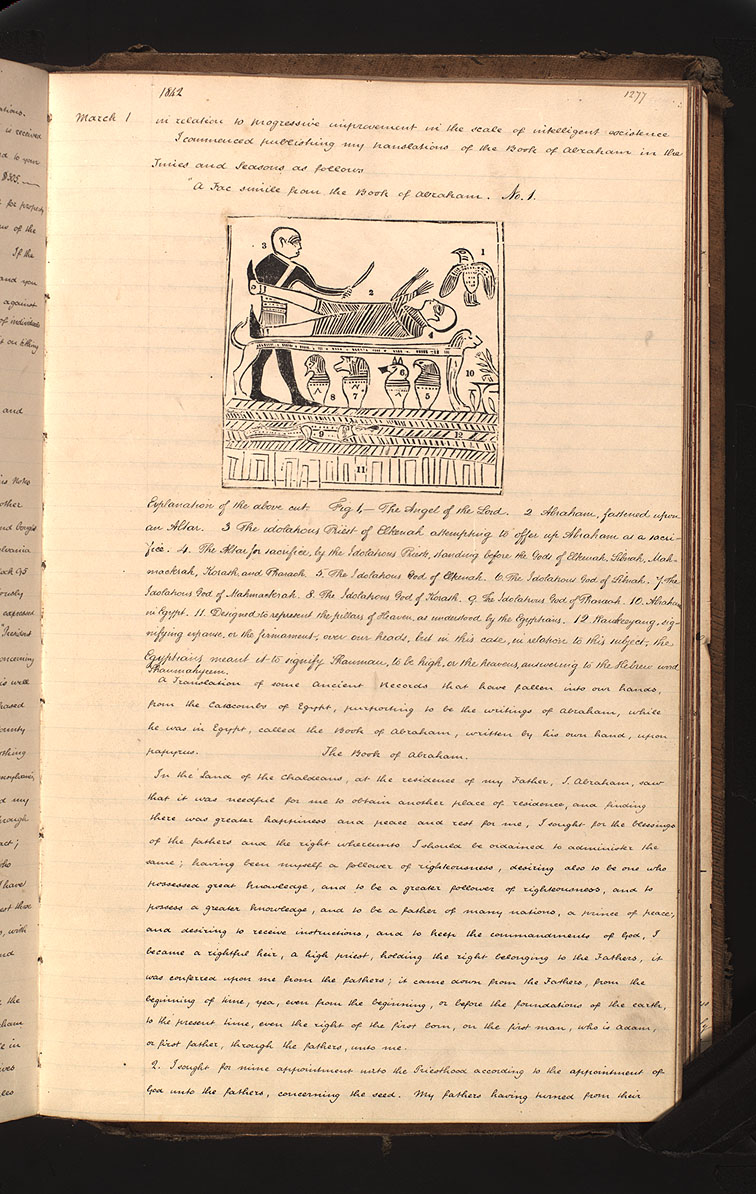 1842
1277
March 1
in relation to progressive improvement in the scale of intelligent existence
I commenced publishing my translations of the Book of Abraham in the
Times and Seasons as follows
"A Fac simile from the Book of Abraham. No. 1.
3
1
2
4
10
8
7
6
5
9
12
11
Explanation of the above cut. Fig 1,— The Angel of the Lord. 2 Abraham, fastened upon
an Altar. 3 The idolatrous Priest of Elkenah attempting to offer up Abraham as a sacri-
fice. 4. The Altar for sacrifice, by the Idolatrous Priests, standing before the Gods of Elkenah, Libnah, Mah-
mackrah, Korash, and Pharaoh. 5. The Idolatrous God of Elkenah. 6. The Idolatrous God of Libnah. 7. The
Idolatrous God of Mahmackrah. 8. The Idolatrous God of Korash. 9. The Idolatrous God of Pharaoh. 10. Abraham
in Egypt. 11. Designed to represent the pillars of Heaven, as understood by the Egyptians. 12. Raukeeyang, sig-
nifying expanse, or the firmament, over our heads, but in this case, in relation to this subject, the
Egyptians meant it to signify Shaumau, to be high, or the heavens, answering to the Hebrew word
Shaumahyeem.
A Translation of some ancient Records that have fallen into our hands,
from the Catacombs of Egypt, purporting to be the writings of Abraham, while
he was in Egypt, called the Book of Abraham, written by his own hand, upon
papyrus. The Book of Abraham.
In the Land of the Chaldeans, at the residence of my Father, I. Abraham, saw
that it was needful for me to obtain another place of residence, and finding
there was greater happiness and peace and rest for me, I sought for the blessings
of the fathers and the right whereunto I should be ordained to administer the
same; having been myself a follower of righteousness, desiring also to be one who
possessed great knowledge, and to be a greater follower of righteousness, and to
possess a greater knowledge, and to be a father of many nations, a prince of peace;
and desiring to receive instructions, and to keep the commandments of God, I
became a rightful heir, a high priest, holding the right belonging to the Fathers, it
was conferred upon me from the fathers; it came down from the Fathers, from the
beginning of time, yea, even from the beginning, or before the foundations of the earth,
to the present time, even the right of the first born, on the first man, who is Adam,
or first father, through the fathers, unto me.
2. I sought for mine appointment unto the Priesthood according to the appointment of
God unto the fathers, concerning the seed. My fathers having turned from their